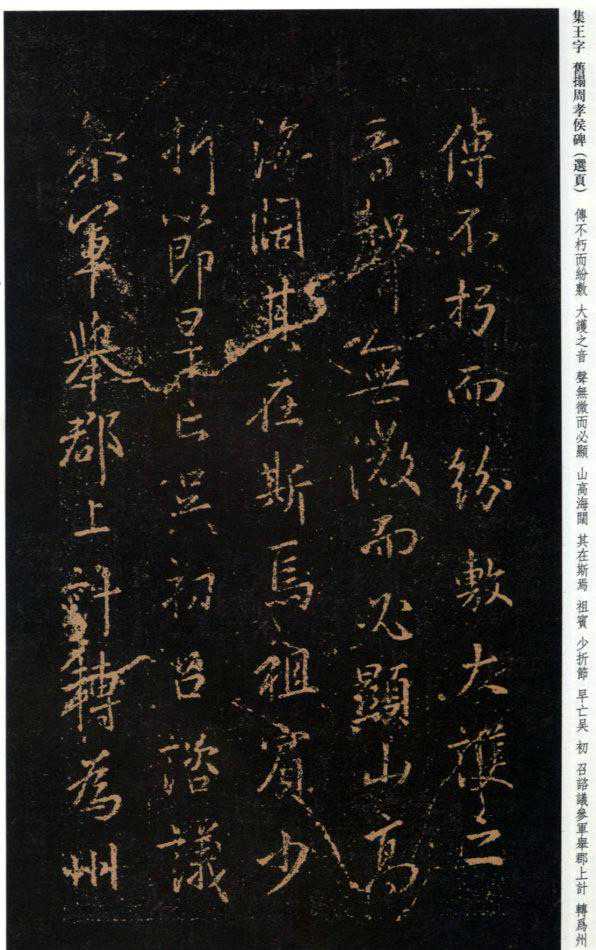 集王字 舊搨周孝侯碑(選頁) 傳不朽而紛敷 大護之音 聲無微而必顯 山高海闊 其在斯焉 祖賓 少折節 早亡吴 初 召諮議參軍舉郡上計 轉爲州
傳不朽而紛敷大護之
音聲無微而必顯山高
海闊其在斯焉祖賓少
折節早亡吳初召諮議
參軍舉郡上計轉為州